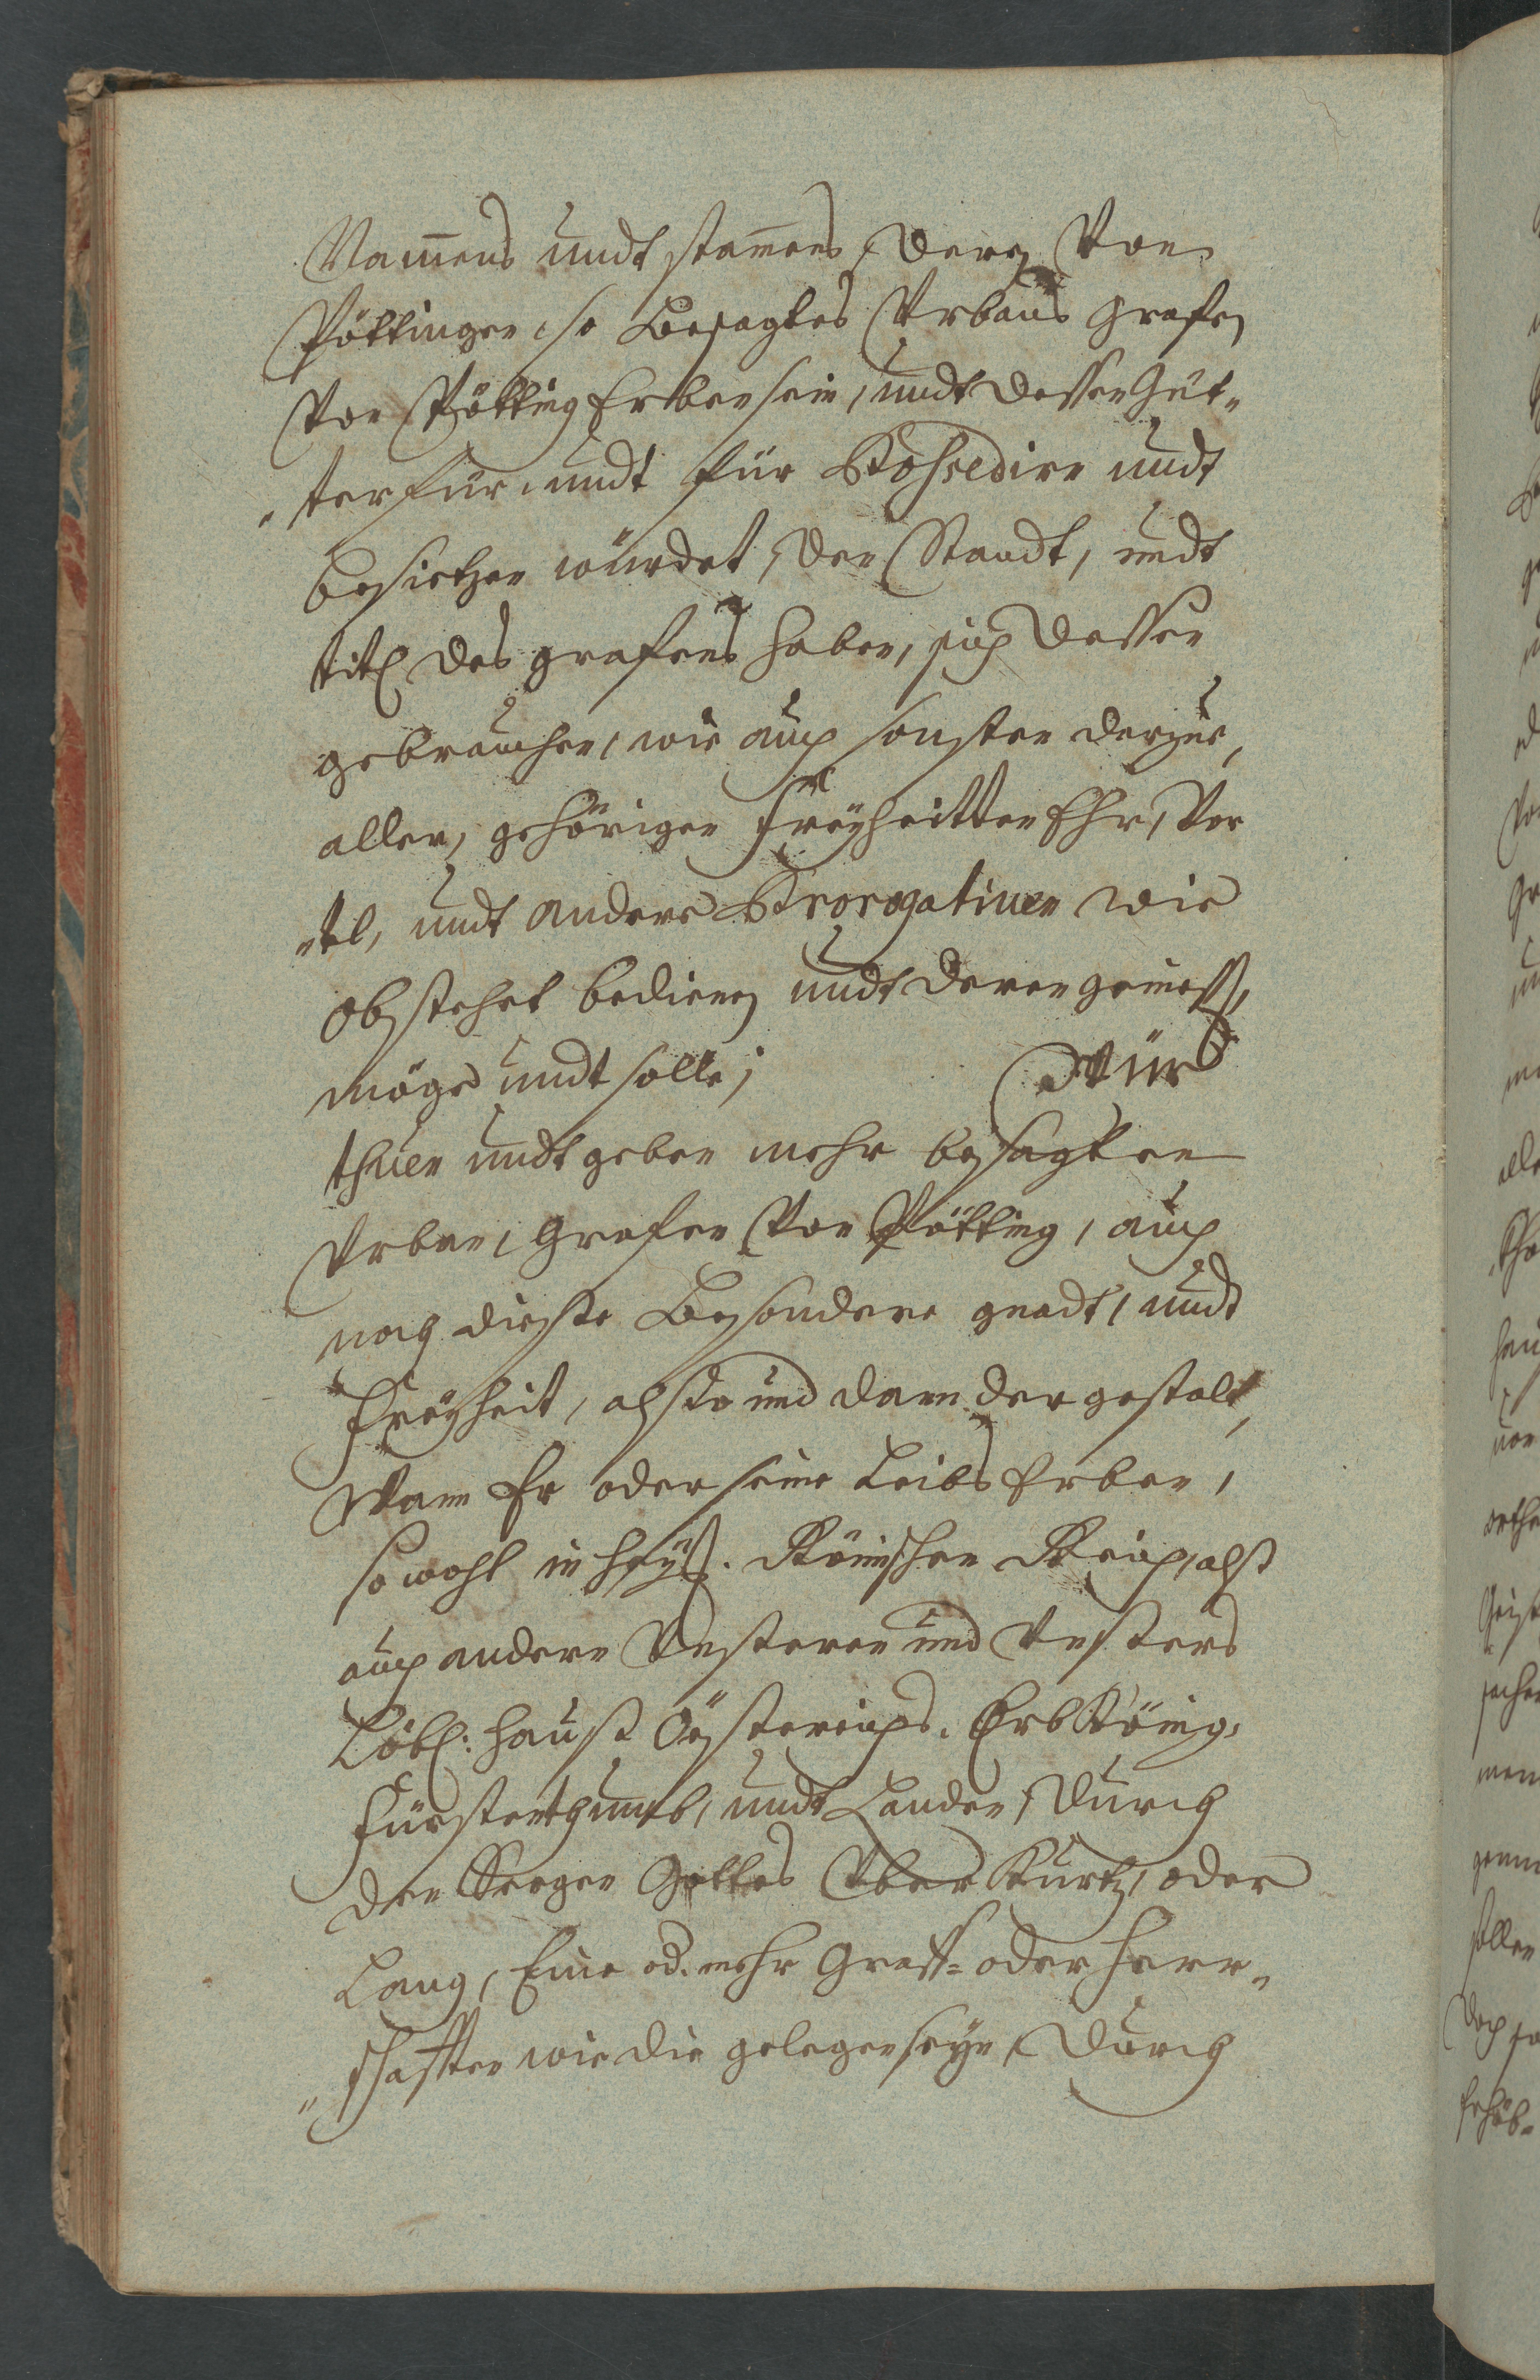 Nammens undt stammens, deren Von
Pöttingen, so Besagtes Urbans grafen
Von Pötting Erben sein, undt dessen Güt„
„ter für undt für Possedirn undt
besietzen würdet, den Standt, undt
titl des grafens haben, sich dessen
gebrauchen, wie auch sonsten darzue,
aller, gehörigen Freyheitten Ehr, Vor
„tel, undt andere Prorogativen wie
obstehet bedienen undt deren geniess,
möge undt solle; Wür
thuen undt geben mehr besagten
Urban, Grafen Von Pötting, auch
noch dieste Besondere gnadt, undt
Freyheit, also und dann dergestalt,
Wann Er oder seine Leibs Erben,
so wohl in Heyl. Römischen Reich, alß
auch andern Unsteren und Unsters
Löbl: Hauß Össterreichs. Erb König,
Fürstenthumb, undt Landen, Durch
den Seegen Gottes Über Kurtz, oder
Lang, Eine od. mehr Graff= oder Herr„
„schafften wie die gelegen seyn, Durch